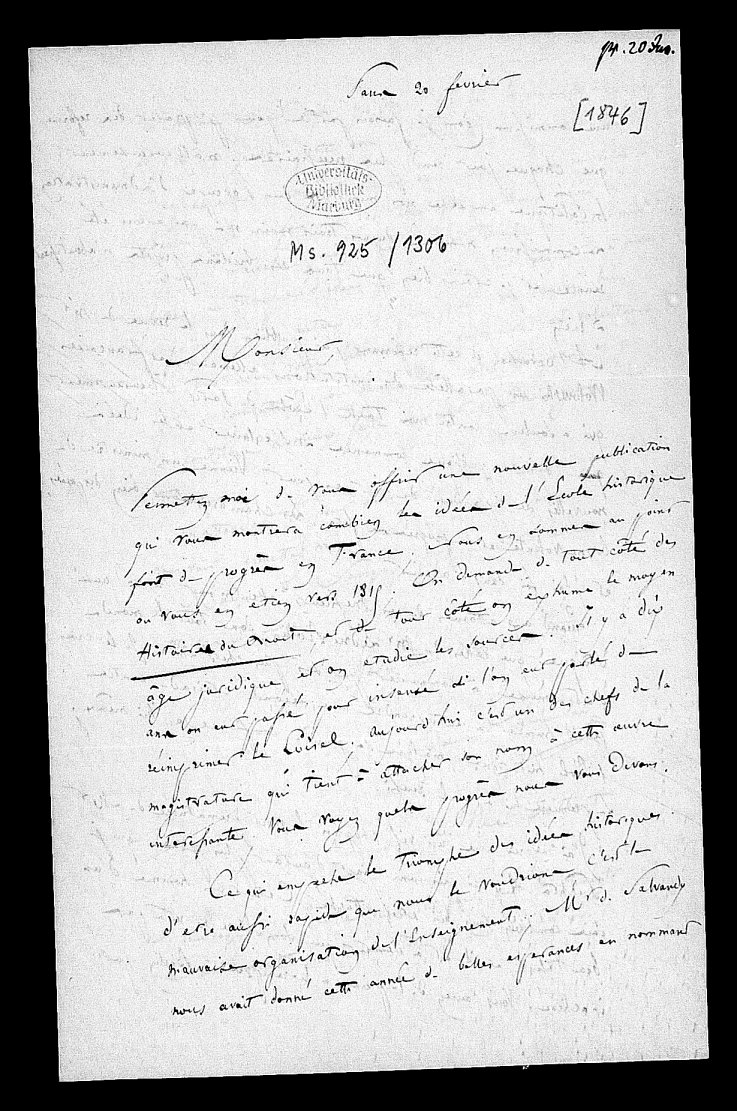 pr. 20 Jun.
Paris 20 fevrier
[1846]
Universitäts-
Bibliothek
Marburg
Ms. 925/1306
Monsieur,
Permettez moi de vous offrir une nouvelle publication
qui vous montrera combien les idées de l'École historique
font de progrès en France. Nous en sommes au point
ou vous en etiez vers 1815. On demande de tout côté des
Histoires du Droit et de tout côté on exhume le moyen
âge juridique et on etudie les sources. Il y a dix
ans on eut passé pour insensé si l'on eut parlé de
réimprimer le Loisel, aujourd'hui c'est un des chefs de la
magistrature qui tient à attacher son nom à cette œuvre
interessante. Vous voyez quels progrès nous vous devons.
Ce qui empeche le triomphe des idées historiques
d'etre aussi rapide que nous le voudrions c'est la
mauvaise organisation de l'Enseignement. Mr. de Salvandy
nous avait donné cette année de belles espérances en nommant